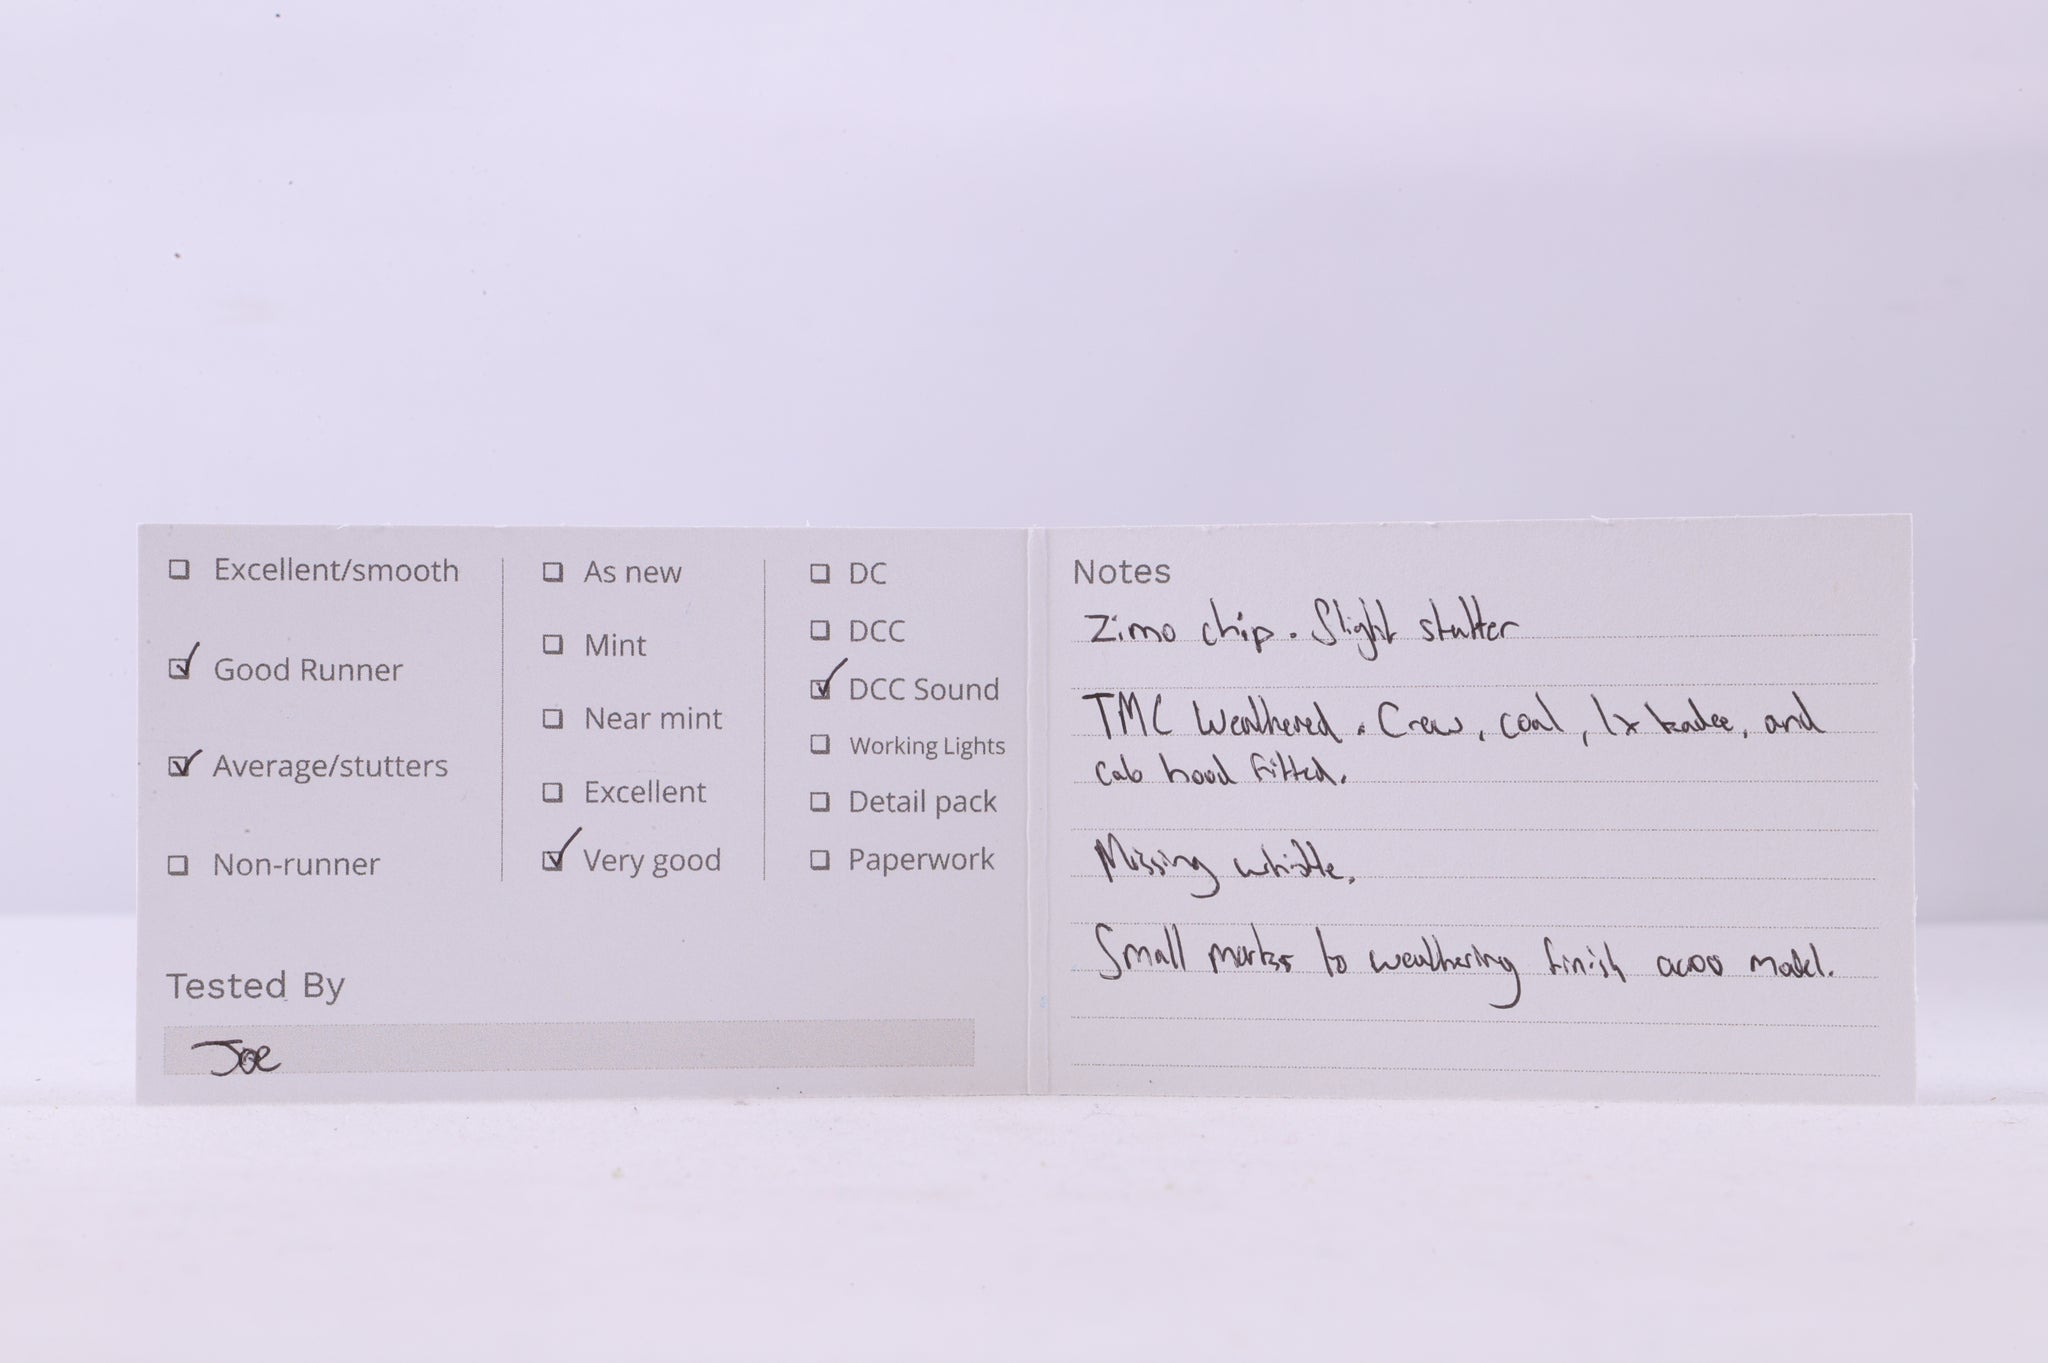 Excellent/smooth
Good Runner
Average/stutters
Non-runner
As new
Mint
Near mint
Excellent
Very good
DC
DCC
DCC Sound
Working Lights
Detail pack
Paperwork
Tested By
Joe
Notes
Zimo chip. Slight stutter
TMC Weathered. Crew, coal, 1x kadee, and
cab hood fitted.
Missing whistle.
Small marks to weathering finish model.